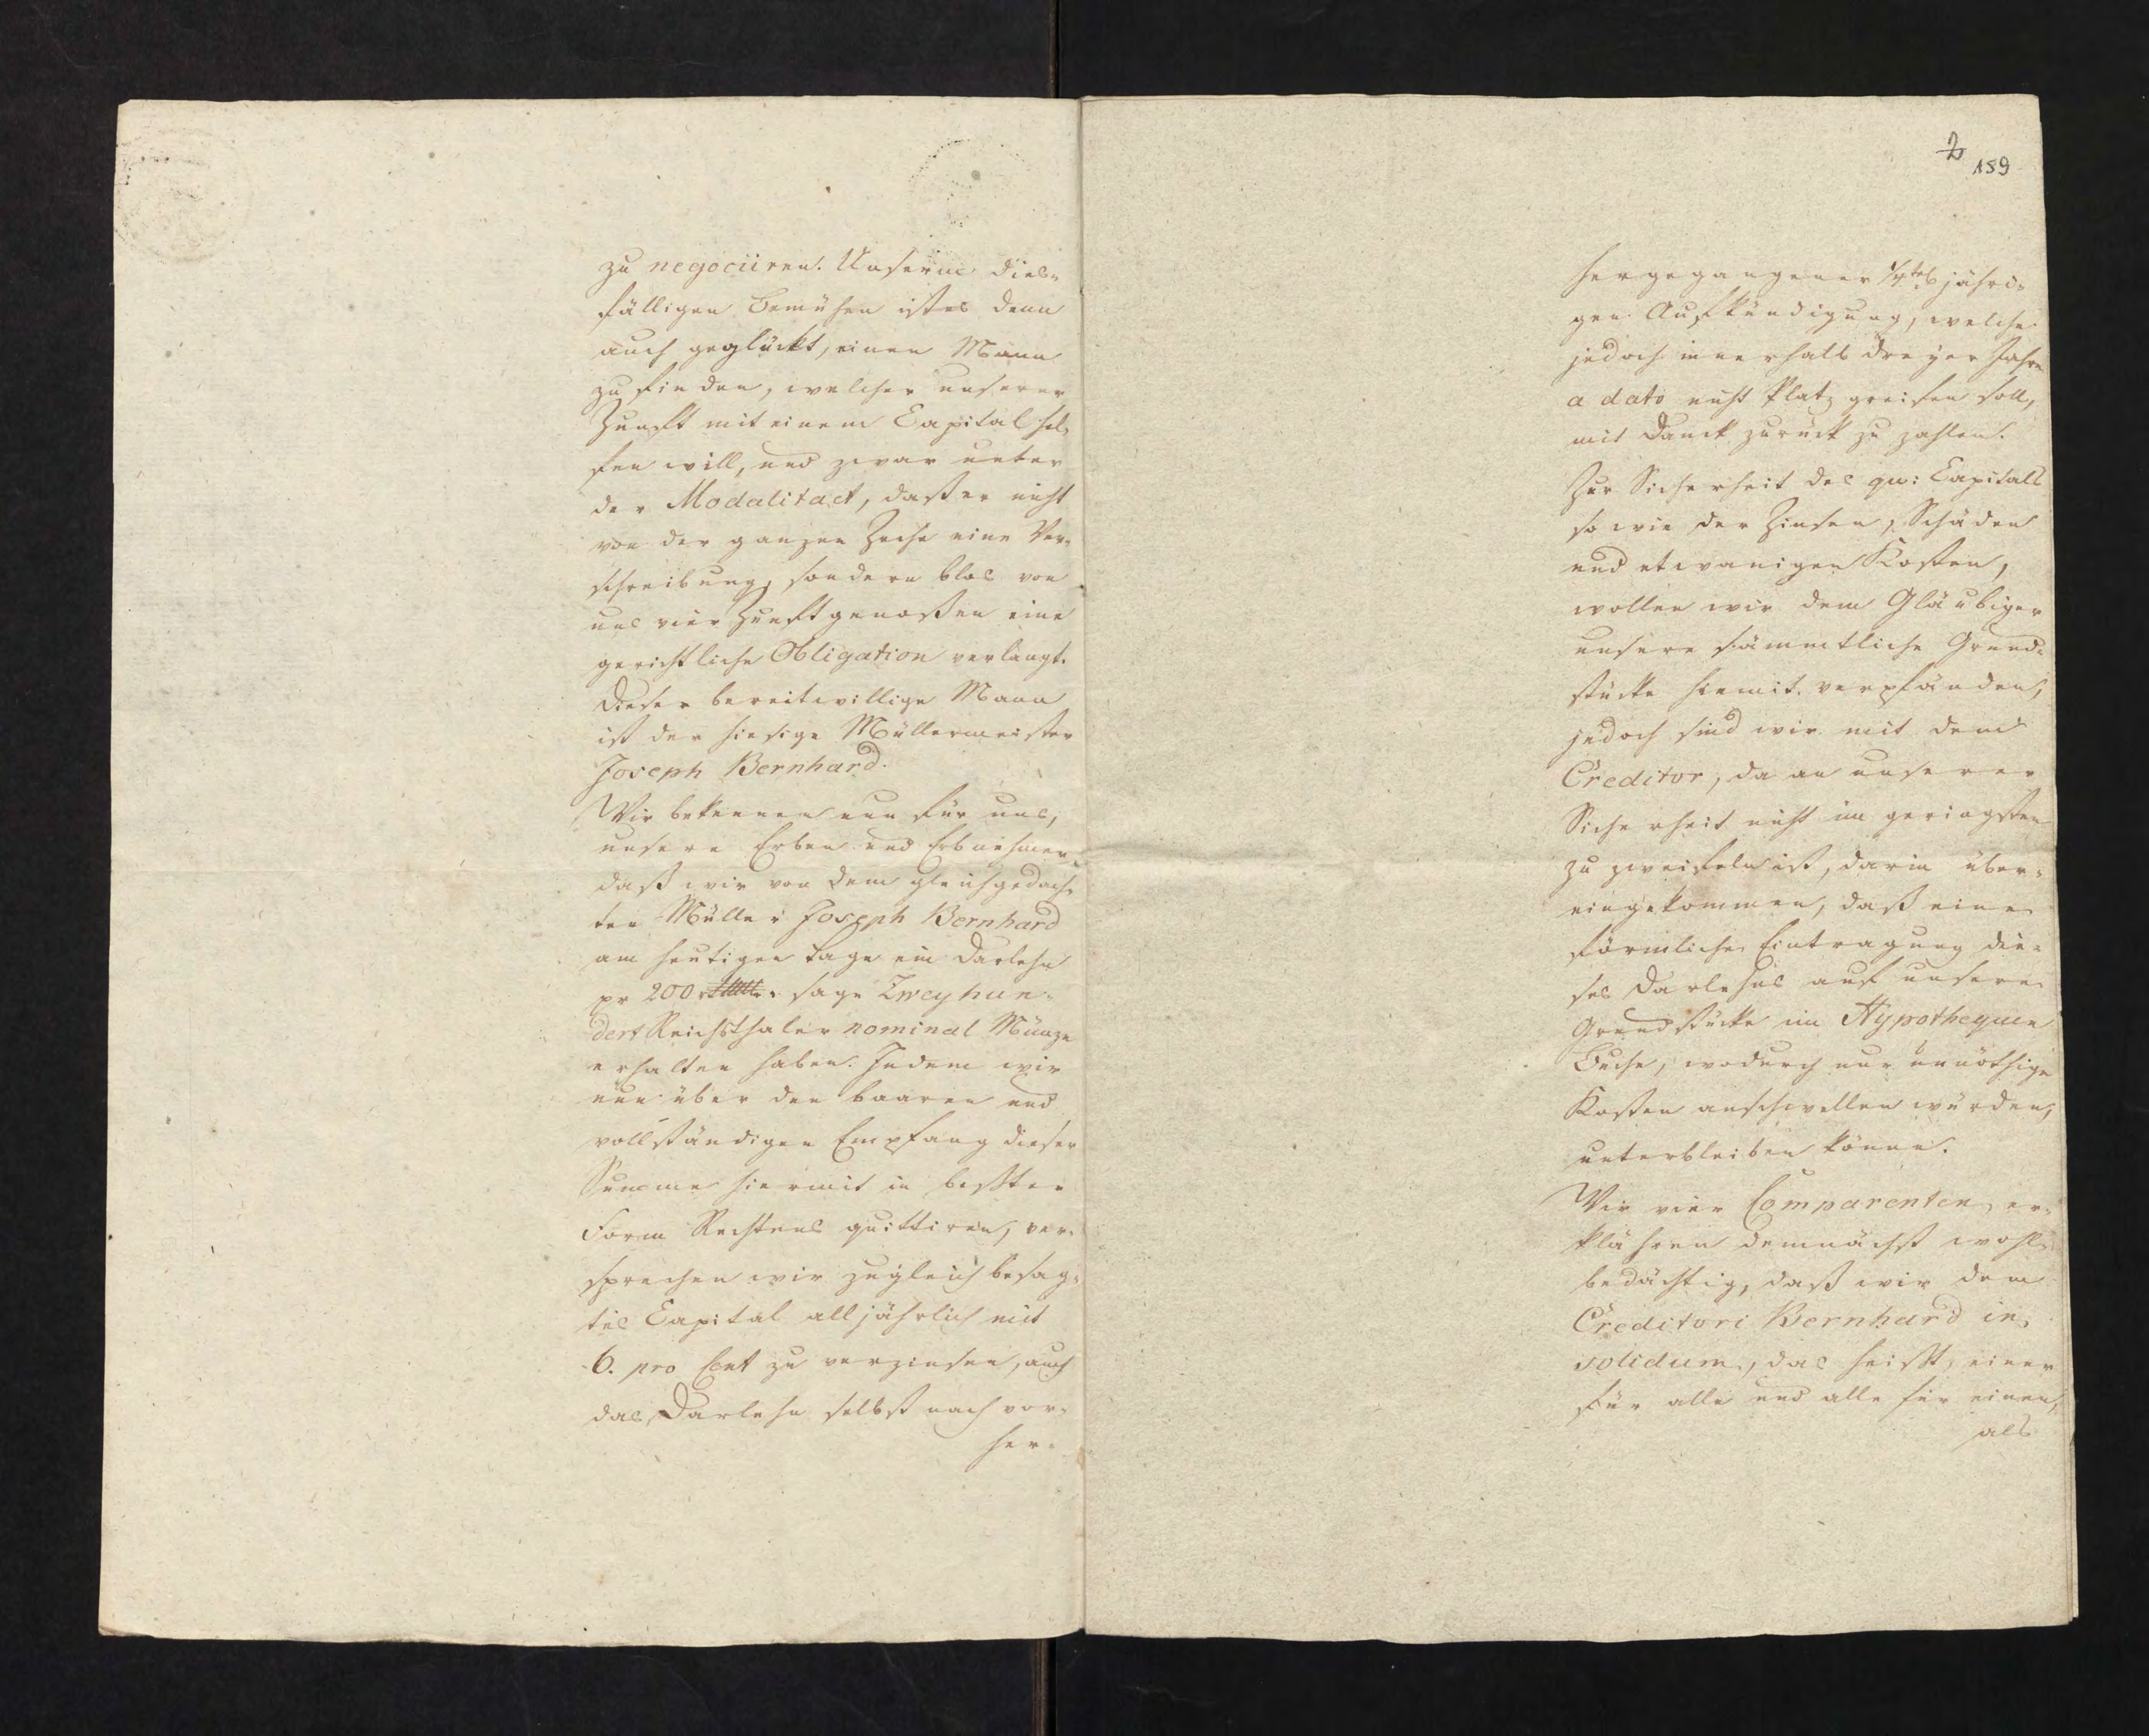 zu negociiren. Unserm dies-
fälligen Bemühen ist es denn
auch geglückt, einen Mann
zu finden, welcher unserer
Zunft mit einem Capital hel-
fen will, und zwar unter
der Modalitaet, daß er nicht
von der ganzen Zeche eine Ver-
schreibung, sondern blos von
uns vier Zunftgenoßen eine
gerichtliche Obligation verlangt.
Dieser bereitwillige Mann
ist der hiesige Müllermeister
Joseph Bernhard.
Wir bekennen nun für uns,
unsere Erben und Erbnehmer
daß wir von dem gleichgedach-
ten Müller Joseph Bernhard
am heutigen Tage ein Darlehn
pr 200 sage Zweyhun-
dert Reichsthaler nominal Münze
erhalten haben. Indem wir
nun über den baaren und
vollständigen Empfang dieser
Summe hiermit in bester
Form Rechtens quittiren, ver-
sprechen wir zugleich besag-
tes Capital alljährlich mit
6. pro Cent zu verzinsen, auch
das Darlehn selbst nach vor-
her-
2
159
hergegangener 1/4tel jähri-
gen Aufkündigung, welche
jedoch innerhalb dreyer Jahre
a dato nicht Platz greifen soll,
mit Danck zurück zu zahlen.
Zur Sicherheit des qu: Capitals
so wie der Zinsen, Schäden
und etwanigen Kosten,
wollen wir dem Gläubiger
unsere sämmtliche Grund-
stücke hiemit verpfänden,
jedoch sind wir mit dem
Creditor, da an unserer
Sicherheit nicht im geringsten
zu zweifeln ist, darin über-
eingekommen, daß eine
förmliche Eintragung die-
ses Darlehns auf unsere
Grundstücke im Hypothequen
Buche, wodurch nur unnöthige
Kosten anschwellen würden,
unterbleiben könne.
Wir vier Comparenten er-
klähren demnächst wohl-
bedächtig, daß wir dem
Creditori Bernhard in
solidum, das heißt, einer
für alle und alle für einen,
als